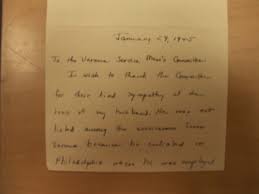 January 29, 1945
To the Verona Service Men's Committee
I wish to thank the Committee
for their kind sympathy at the
loss of my husband. He was not
listed among the servicemen from
Verona because he enlisted in
Philadelphia where he was employed